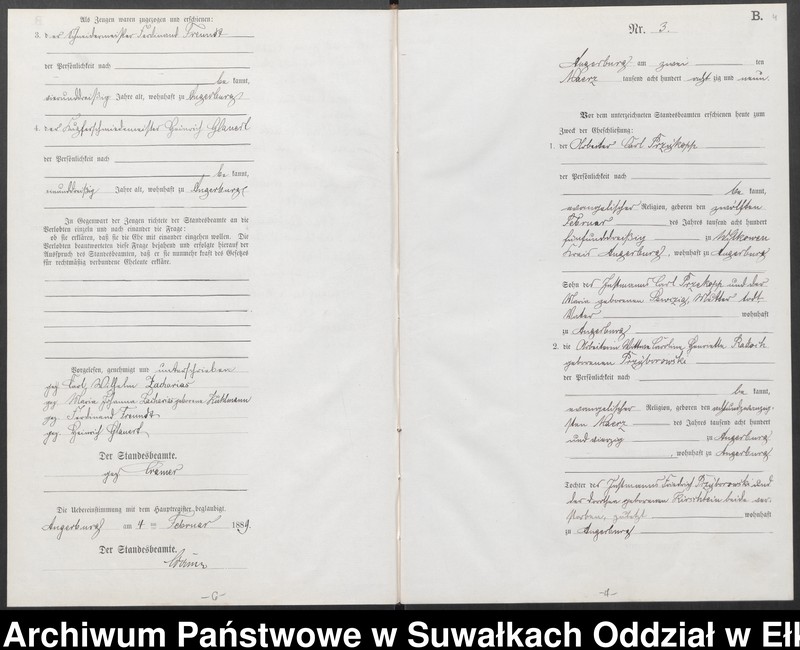 Als Zeugen waren zugezogen und erschienen:
3. der Schneidermeister Ferdinand Freundt
der Persönlichkeit nach
be kannt,
vierunddreißig Jahre alt, wohnhaft zu Angerburg
4. der Kupferschmiedemeister Heinrich Glanert
der Persönlichkeit nach
be kannt,
neununddreißig Jahre alt, wohnhaft zu Angerburg.
In Gegenwart der Zeugen richtete der Standesbeamte an die
Verlobten einzeln und nach einander die Frage:
ob sie erklären, daß sie die Ehe mit einander eingehen wollen. Die
Verlobten beantworteten diese Frage bejahend und erfolgte hierauf der
Ausspruch des Standesbeamten, daß er sie nunmehr kraft des Gesetzes
für rechtmäßig verbundene Eheleute erkläre.
Vorgelesen, genehmigt und unterschrieben
gez. Carl Wilhelm Zacharias
gez. Maria Johanna Zacharias geborene
gez. Ferdinand Freundt
gez. Heinrich Glanert
Der Standesbeamte.
gez. Cramer
Die Uebereinstimmung mit dem Hauptregister beglaubigt.
Angerburg am 4 ten Februar 1889.
Der Standesbeamte.
Cramer
- 6 -
B.
Nr. 3.
Angerburg am zwei ten
Maerz tausend acht hundert acht zig und neun.
Vor dem unterzeichneten Standesbeamten erschienen heute zum
Zweck der Eheschließung:
1. der Arbeiter Carl
der Persönlichkeit nach
be kannt,
evangelischer Religion, geboren den zwoelften
Februar des Jahres tausend acht hundert
fünfunddreißig zu
Kreis Angerburg, wohnhaft zu Angerburg
Sohn des Instmanns Carl und der
Maria geborenen Mutter todt
Vater wohnhaft
zu Angerburg
2. die Arbeiterin Wittwe Caroline Henriette
geborenen Przyborowski
der Persönlichkeit nach
be kannt,
evangelischer Religion, geboren den achtundzwanzig-
sten Maerz des Jahres tausend acht hundert
und vierzig zu Angerburg
, wohnhaft zu Angerburg
Tochter des Instmanns Friedrich Przyborowski und
der Dorothea geborenen beide ver-
storben, zuletzt wohnhaft
zu Angerburg
Archiwum Państwowe w Suwałkach Oddział w Ełk